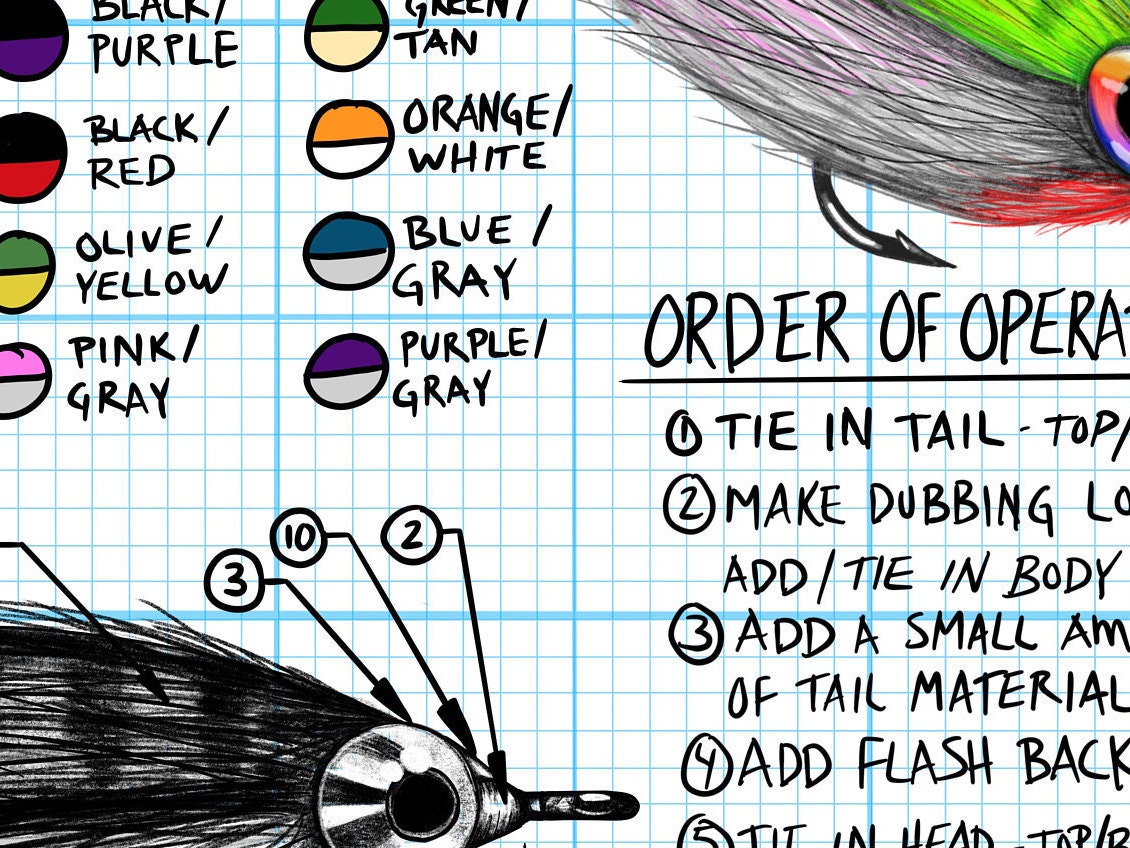 BLACK/
PURPLE
GREEN/
TAN
BLACK/
RED
ORANGE/
WHITE
OLIVE/
YELLOW
BLUE/
GRAY
PINK/
GRAY
PURPLE/
GRAY
3
10
2
ORDER OF
1 TIE IN TAIL - TOP/
2 MAKE DUBBING
ADD/TIE IN BODY
3 ADD A SMALL
OF TAIL MATERIAL
4 ADD FLASH BACK
5 TIE IN HEAD - TOP/